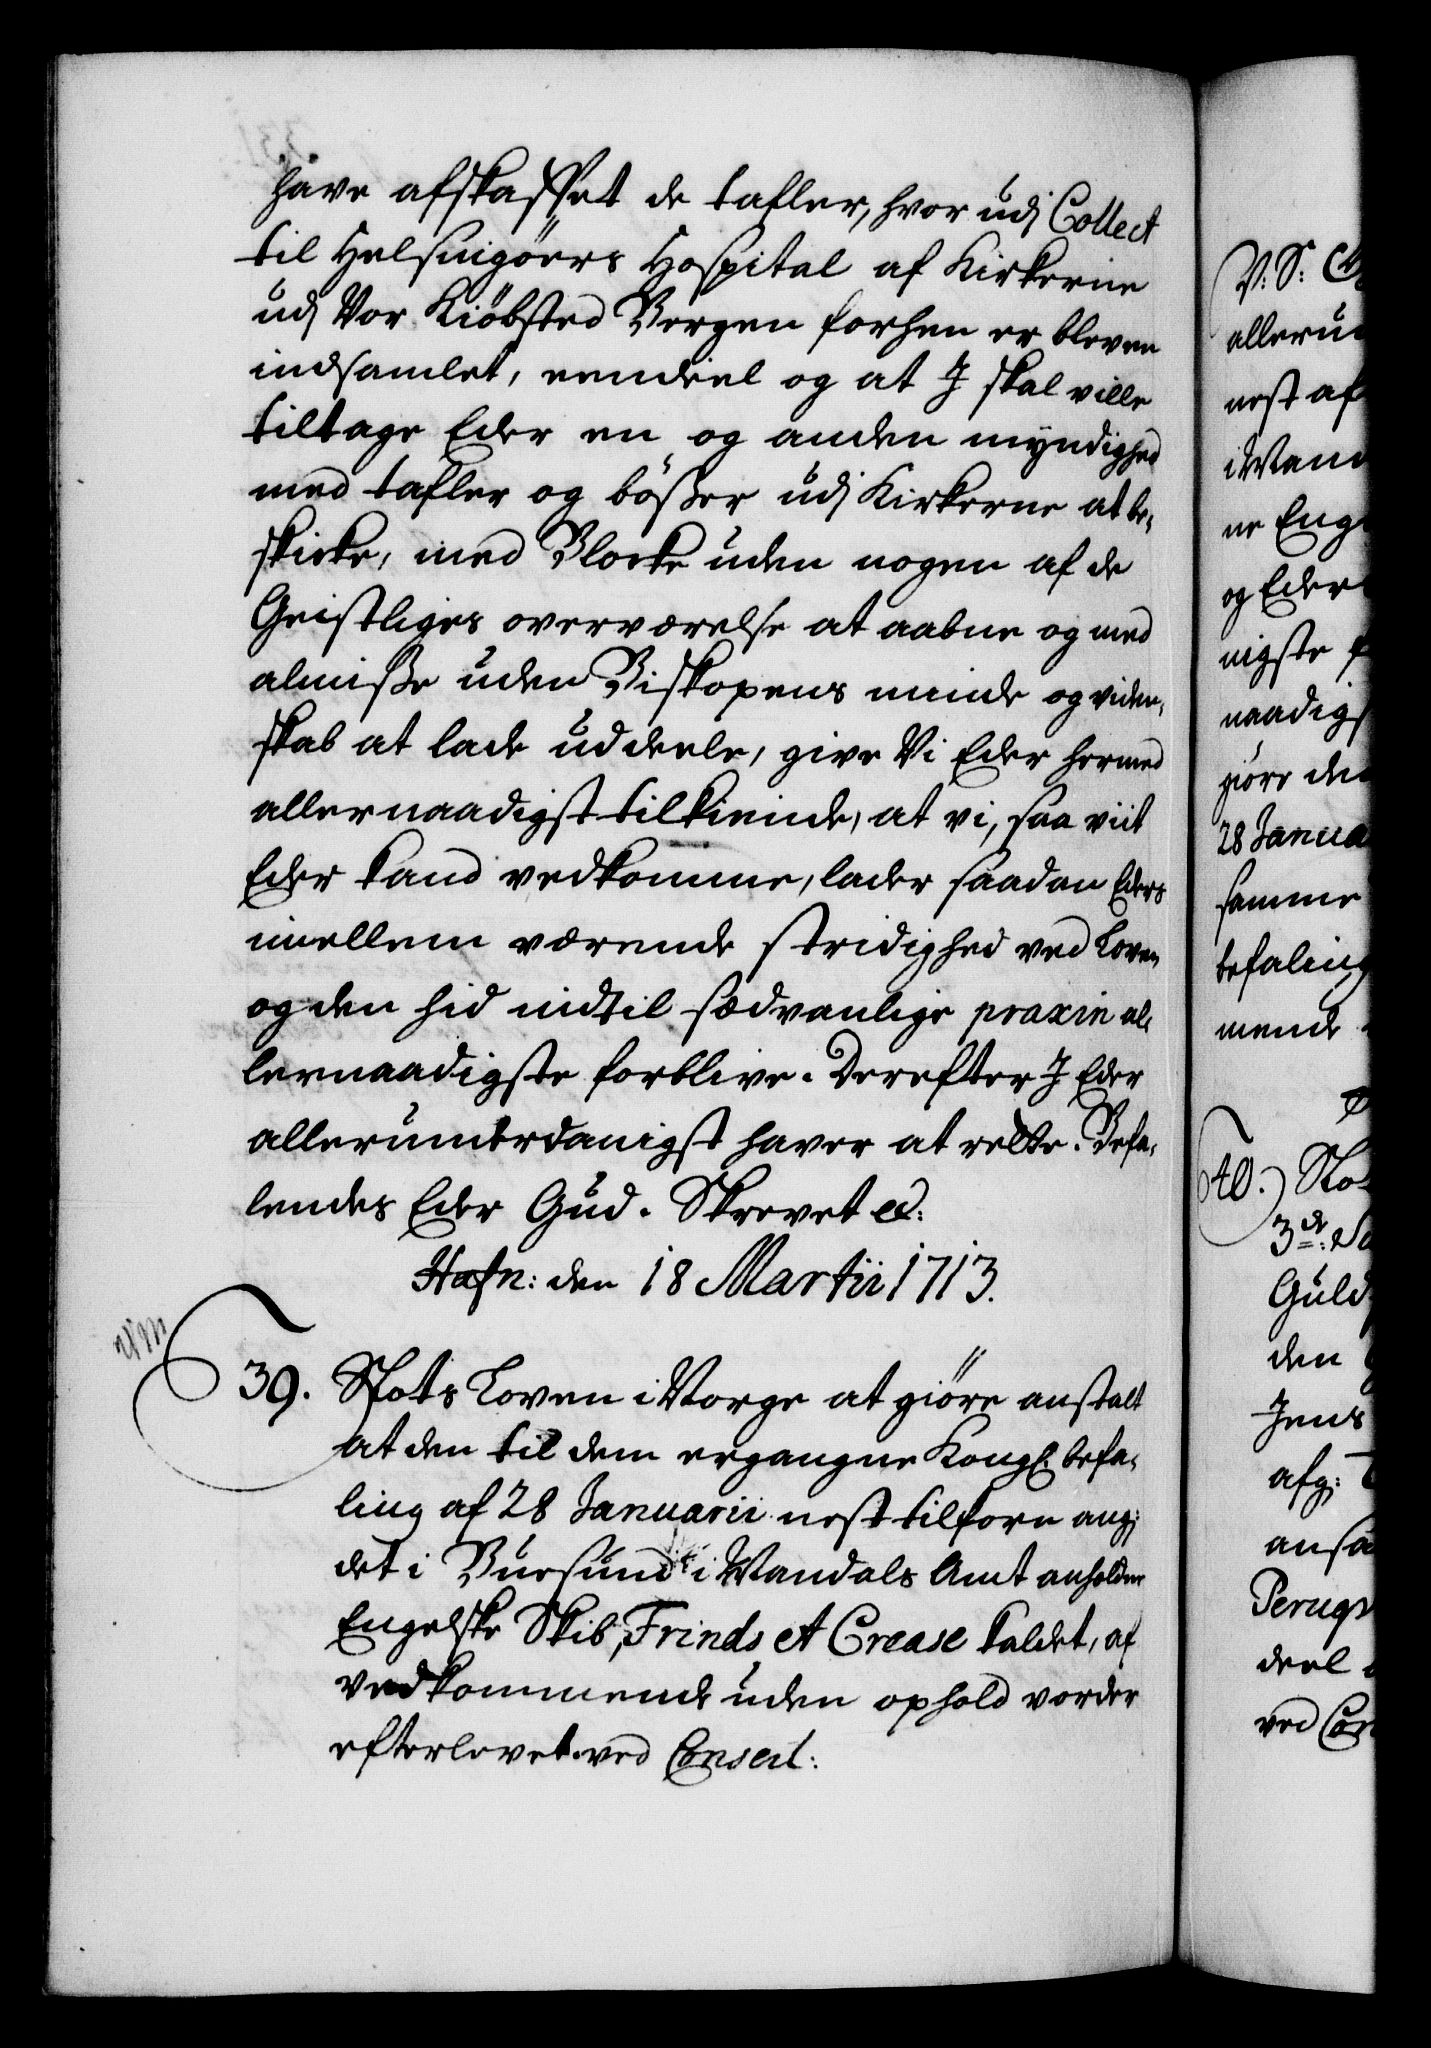 have afskaffet de tafler, hvor udj Collect
til Helsingöers Hospital af Kirkerne
udj Vor Kiöbsted Bergen forhen er bleven
indsamlet, eendeel og at J skal ville
tiltage Eder en og anden myndighed
med tafler og bößer udj Kirkerne at be,
skicke, med Blocke uden nogen af de
Geistliges overværelse at aabne og med
almiße uden Biskopens minde og viden,
skab at lade uddeele, give Vi Eder hermed
allernaadigst tilkiende, at vi, saa viit
Eder kand vedkomme, lader saadan Eders
imellem værende stridighed ved Loven
og den hid indtil sædvanlige praxin al,
lernaadigste forblive. Derefter J Eder
allerunterdanigst haver at rette. Befa,
lendes Eder Gud. Skrevet etc:
Hafn: den 18 Martii 1713.
39. Slots Loven i Norge at giöre anstalt
at den til dem ergangne Kongl. befa,
ling af 28 Januarii nest tilforn ang:
det i Buesund i Mandals Amt anholdne
Engelske Skib, Frinds et Crease kaldet, af
vedkommende uden ophold vorder
efterlevet. ved Concert:
V: S:
alleru
nest af
i Mand
ne Eng
og Eder
nigste
naadigs
giöre den
28 Janua
samme
befaling
mende
40. Slo
3de: 
Guld
den
Jens
afg:
ansø
Perugv
deel
ved Con